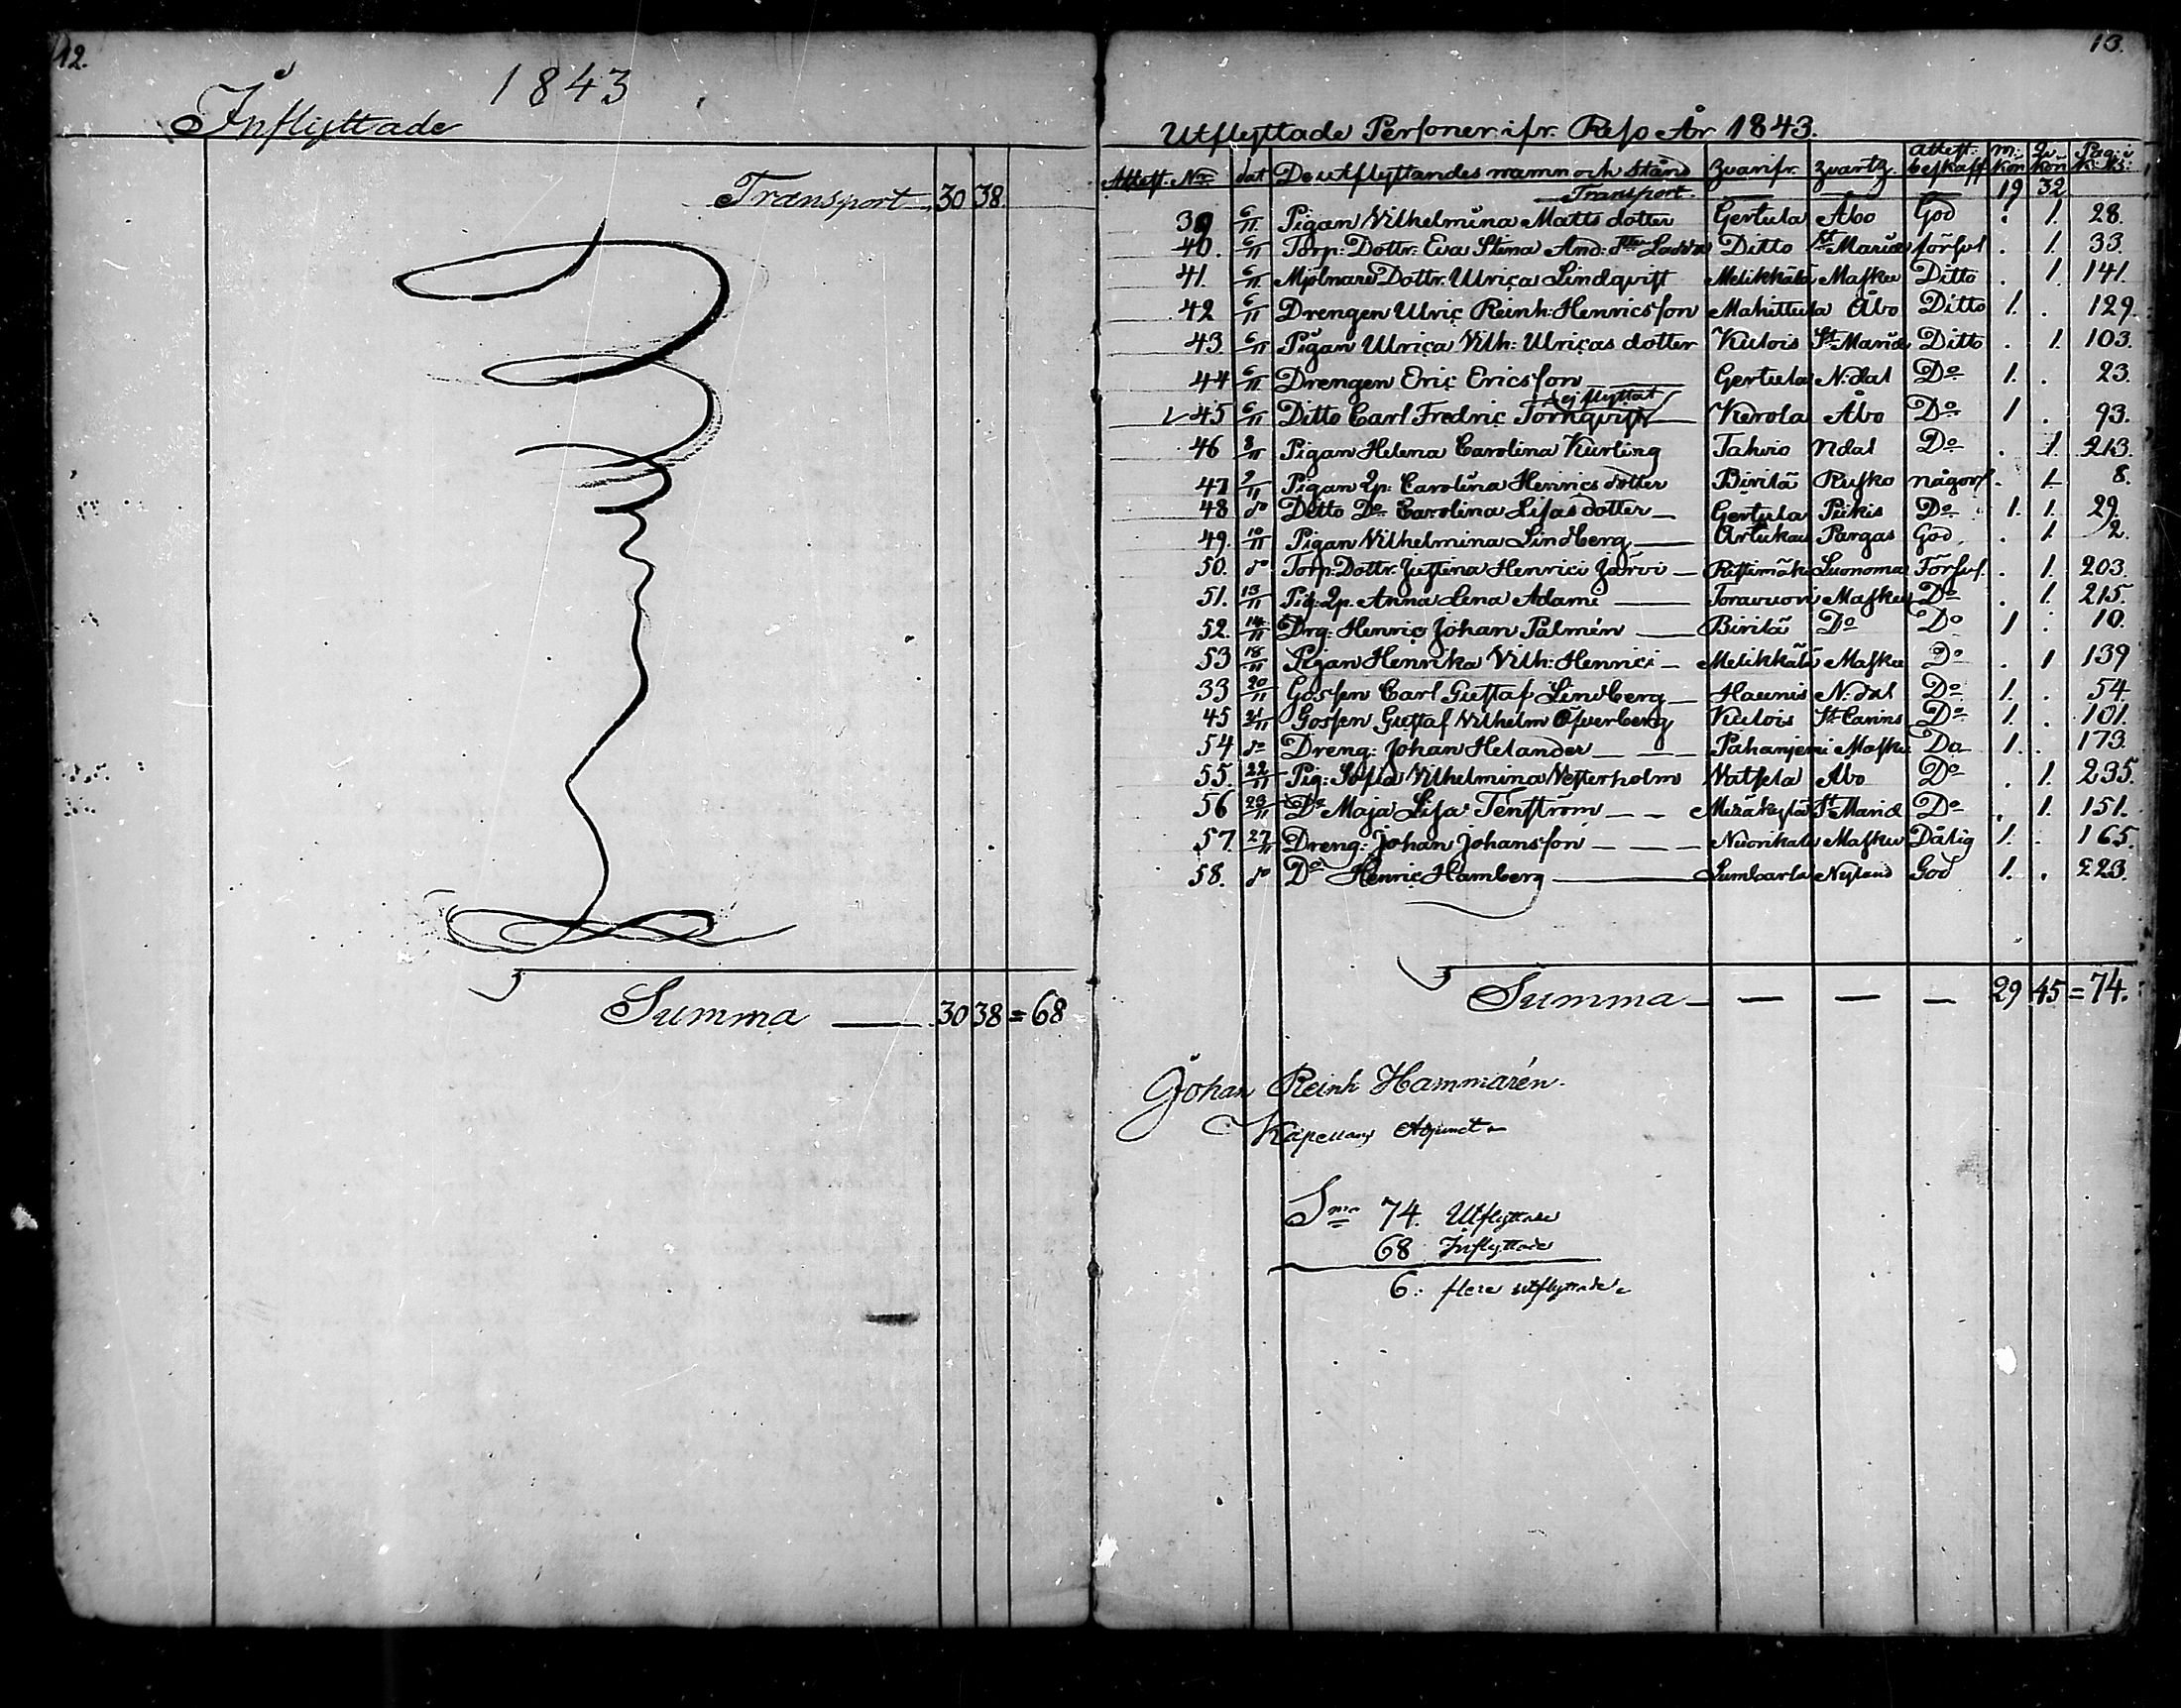 12.
1843
Inflyttade
Transport 30 38.
Summa 30 38 = 68
13.
Utflyttade Personer ifr. Reso År 1843.
Attest. No dat De utflyttandes namn och Stånd Hvarifr. Hvart attest. beskaff m: Kön q. Kön Pag: i K: B:
Transport. 19 32
39 6/11 Pigan Vilhelmina Matts dotter Gertula Åbo God . 1. 28.
40. 6/11 Torp: Dottr. Eva Stina And: dter Ditto St Mariæ förfl . 1. 33.
41. 6/11 Mjölnare Dottr. Ulrica Lindqvist Melikkälä Masku Ditto . 1. 141.
42 6/11 Drengen Ulric Reinh: Henricsson Mahittula Åbo Ditto 1. . 129.
43. 6/11 Pigan Ulrica Vilh: Ulricas dotter Kulois St Mariæ Ditto . 1. 103.
44 6/11 Drengen Eric Ericsson Gertula N:dal Do 1. . 23.
ej flyttat
45 6/11 Ditto Carl Fredric Törnqvist Kerola Åbo Do 1 . 93.
46 8/11 Pigan Helena Carolina Kurling Tahvio Ndal Do . 1. 213.
47 9/11 Pigan Qp: Carolina Henrics dotter Birilä Rusko någorl. . 1 8.
48 do Ditto Do Carolina Lisas dotter Gertula Pikis Do 1. 1. 29.
49. 10/11 Pigan Vilhelmina Lindberg Artukais Pargas God . 1. 2.
50. do Torp: Dottr. Justina Henrici Järvi Ristimäki Luonoma Förfl. . 1. 203.
51. 13/11 Pig. Qp. Anna Lena Adami Toravuori Masku Do . 1. 215.
52. 14/11 Drg: Henric Johan Palmén Birilä Do Do 1 . 10.
53 18/11 Pigan Henrika Vilh: Henrici Melikkälä Masku Do . 1 139
33 20/11 Gossen Carl Gustaf Lindberg Haunis N:dal Do 1. . 54
45 21/11 Gossen Gustaf Vilhelm Öfverberg Kulois St Carins Do 1. . 101.
54 do Dreng: Johan Helander Pahanjemi Masku Do 1. . 173.
55. 22/11 Pig: Sofia Vilhelmina Vesterholm Vatsela Åbo Do . 1. 235.
56 23/11 Do Maja Lisa Tenström St Mariæ Do . 1. 151.
57. 27/11 Dreng: Johan Johansson Nuorikala Masku Dålig 1. . 165.
58. do Do Henric Hamberg Lumbarla Nyland God 1. . 223.
Summa 29 45 = 74.
Johan Reinh Hammarén.
Kapellans Adjunct
Sma 74. Utflyttade
68 Inflyttade
6: flere utflyttade